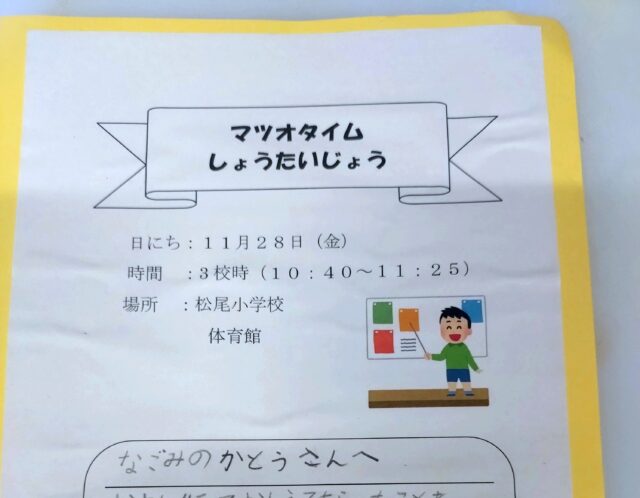 マツオタイム
しょうたいじょう
日にち：１１月２８日（金）
時間　：３校時（１０：４０～１１：２５）
場所　：松尾小学校
体育館
なごみのかとうさんへ